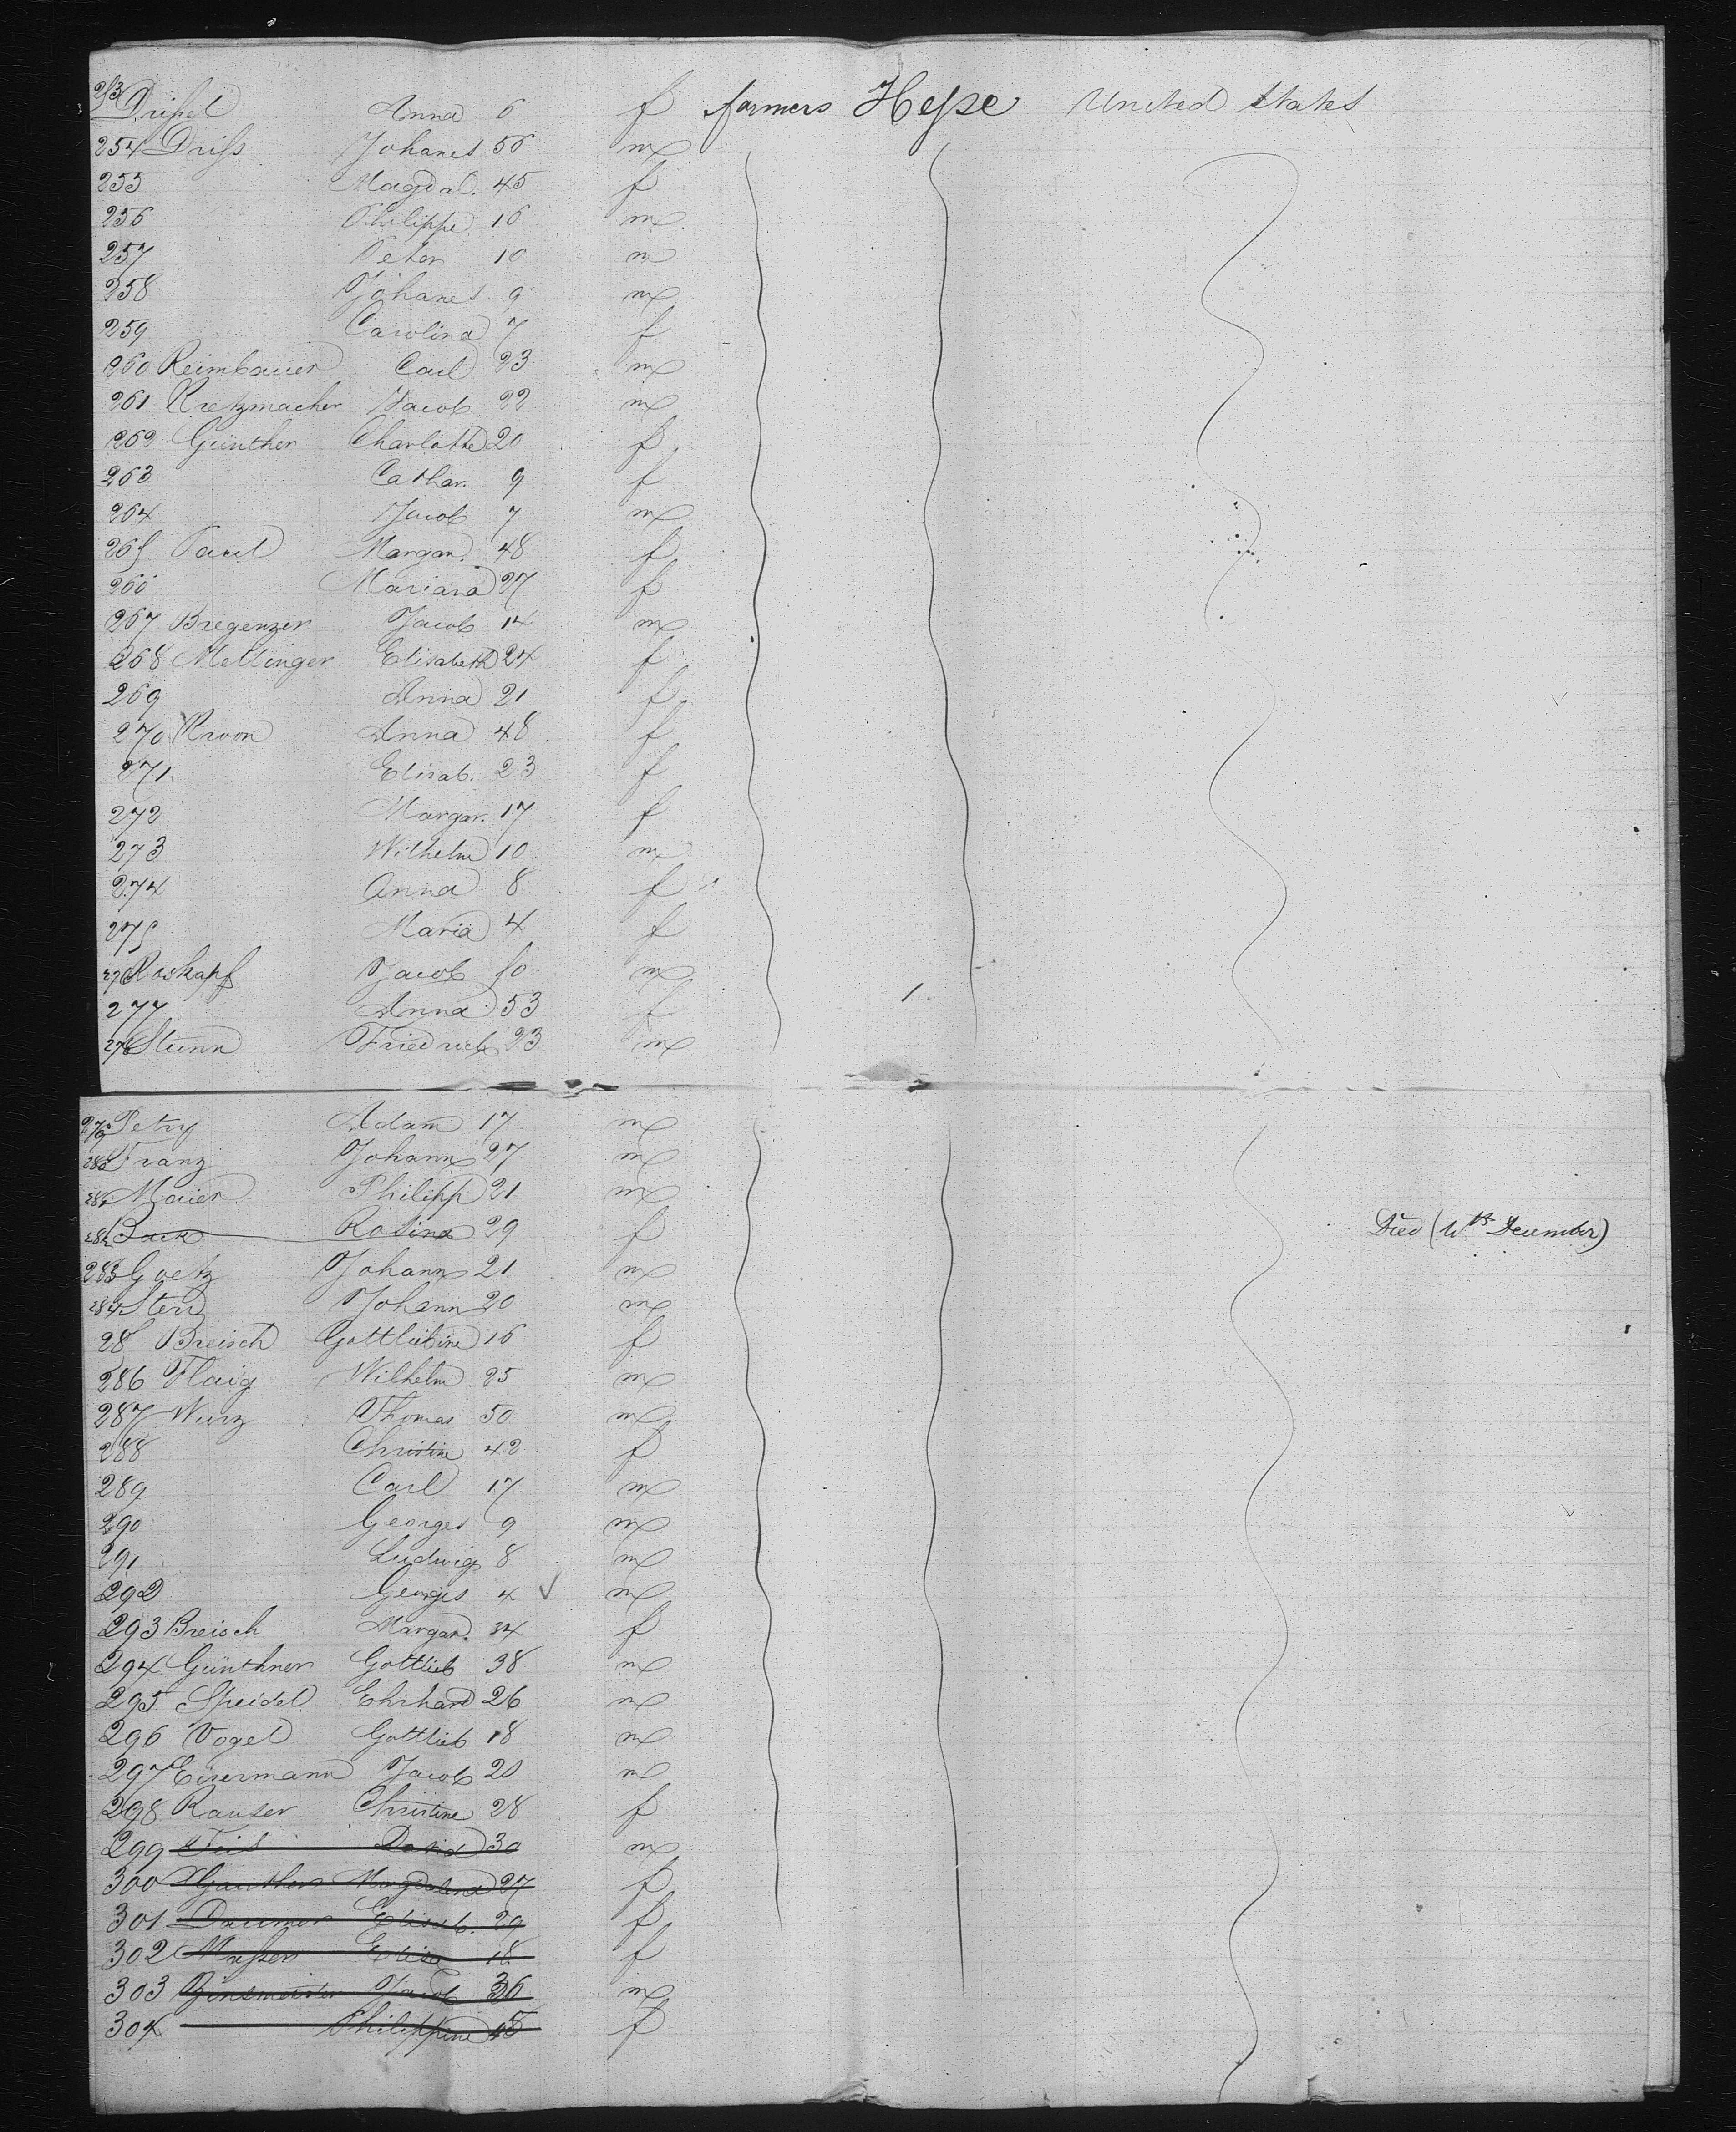 253 Drissel Anna 6 f farmers Hesse United States
254 Driss Johanes 56 m
255 Magdal. 45 f
256 Philippe 16 m
257 Peter 10 m
258 Johanes 9 m
259 Carolina 7 f
260 Reimbauer Carl 23 m
261 Kretzmacher Jacob 22 m
262 Günther Charlotte 20 f
263 Cathar. 9 f
264 Jacob 7 m
265 Paul Margar. 48 f
266 Mariana 27 f
267 Bregenzer Jacob 14 m
268 Mellinger Elisabeth 24 f
269 Anna 21 f
270 Kroon Anna 48 f
271 Elisab. 23 f
272 Margar. 17 f
273 Wilhelm 10 m
274 Anna 8 f
275 Maria 4 f
276 Roskapf Jacob 50 m
277 Anna 53 f
278 Stumm Friedrich 23 m
279 Petry Adam 17 m
280 Franz Johann 27 m
281 Maier Philipp 21 m
282 Back Rosina 29 f Died (10th December)
283 Goetz Johann 21 m
284 Johann 20 m
28 Breisch Gottliebine 16 f
286 Flaig Wilhelm 25 m
287 Wurz Thomas 50 m
288 Christine 42 f
289 Carl 17 m
290 Georges 9 m
291 Ludwig 8 m
292 Georges 4 m
293 Breisch Margar. 34 f
294 Günthner Gottlieb 38 m
295 Speidel Ehrhard 26 m
296 Vogel Gottlieb 18 m
297 Eisermann Jacob 20 m
298 Rauser Christine 28 f
299 David 30 m
300 Gauther Magdalena 27 f
301 Elisab. 29 f
302 Elisa 18 f
303 Zinsmeister Jacob 36 m
304 Philippine 45 f